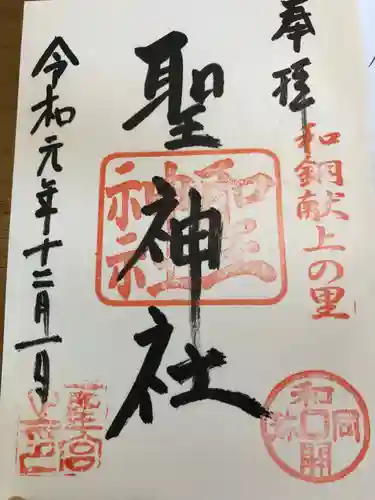 奉拝
和銅献上の里
聖神社
聖神社
令和元年十二月一日
和同開珎